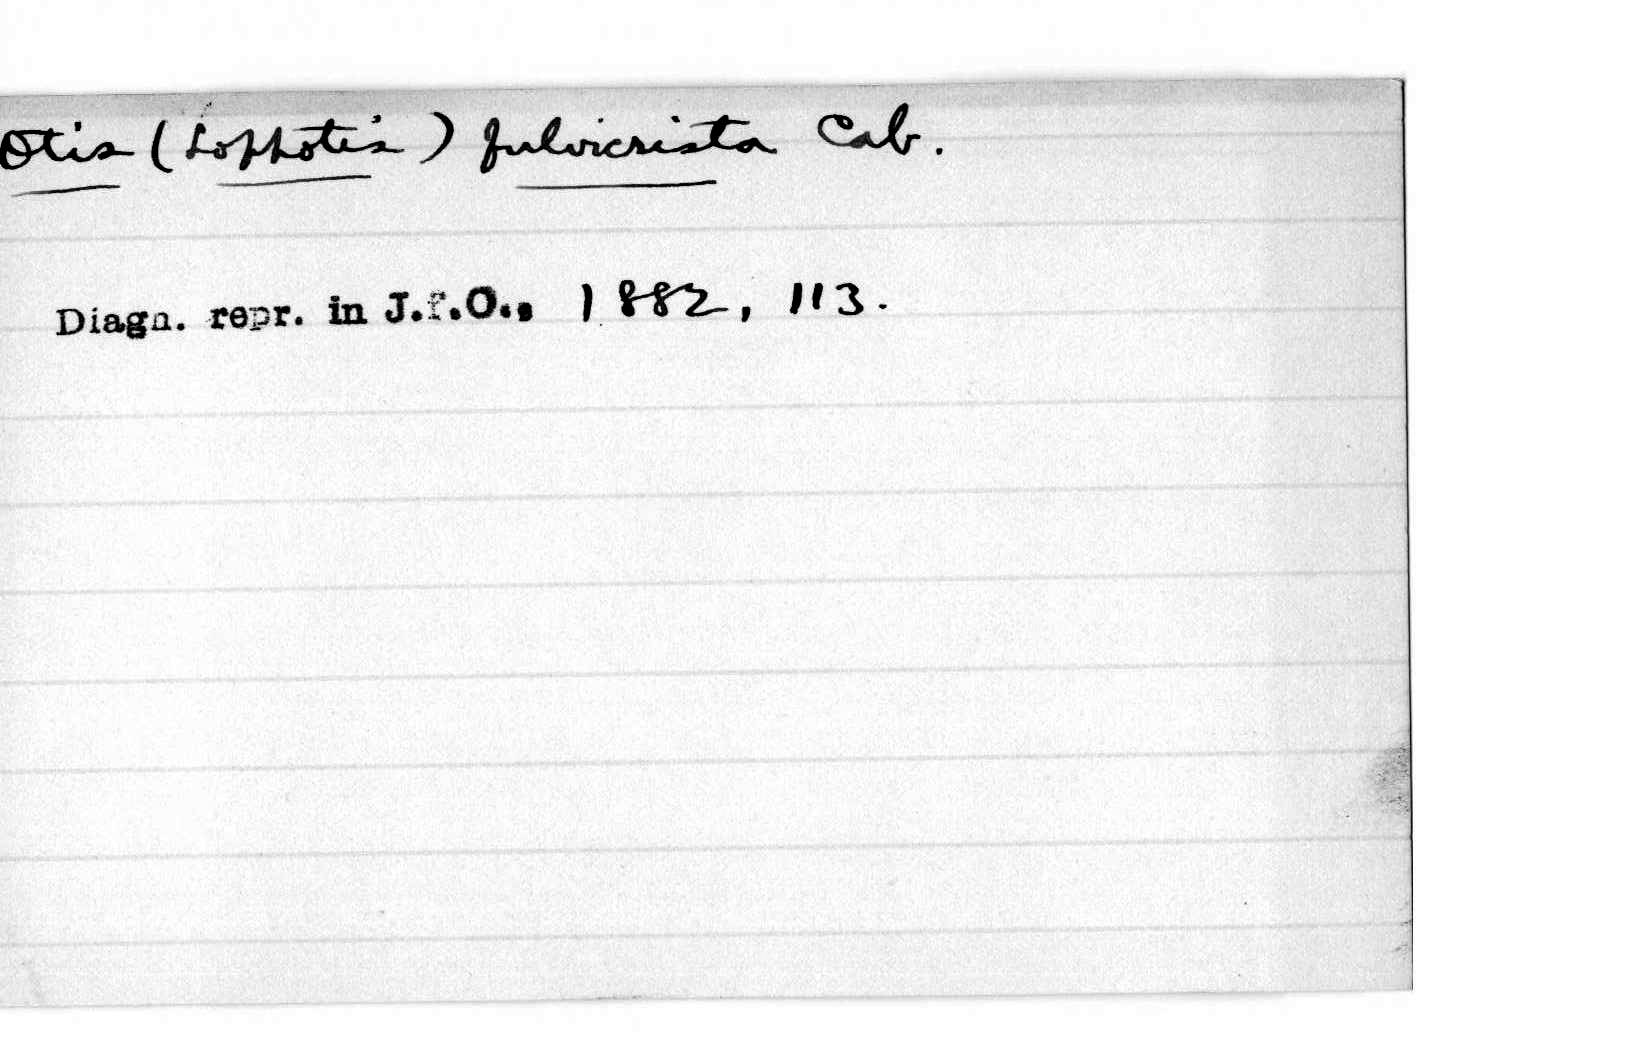 Otis (Lophotis) fulvicrista Cab.
Diagn. repr. in J.f.O., 1882, 113.